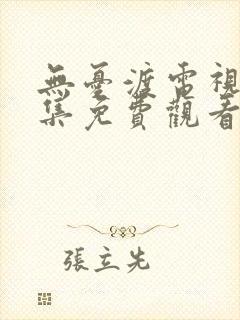 無憂渡電視
集免費觀看
張立先